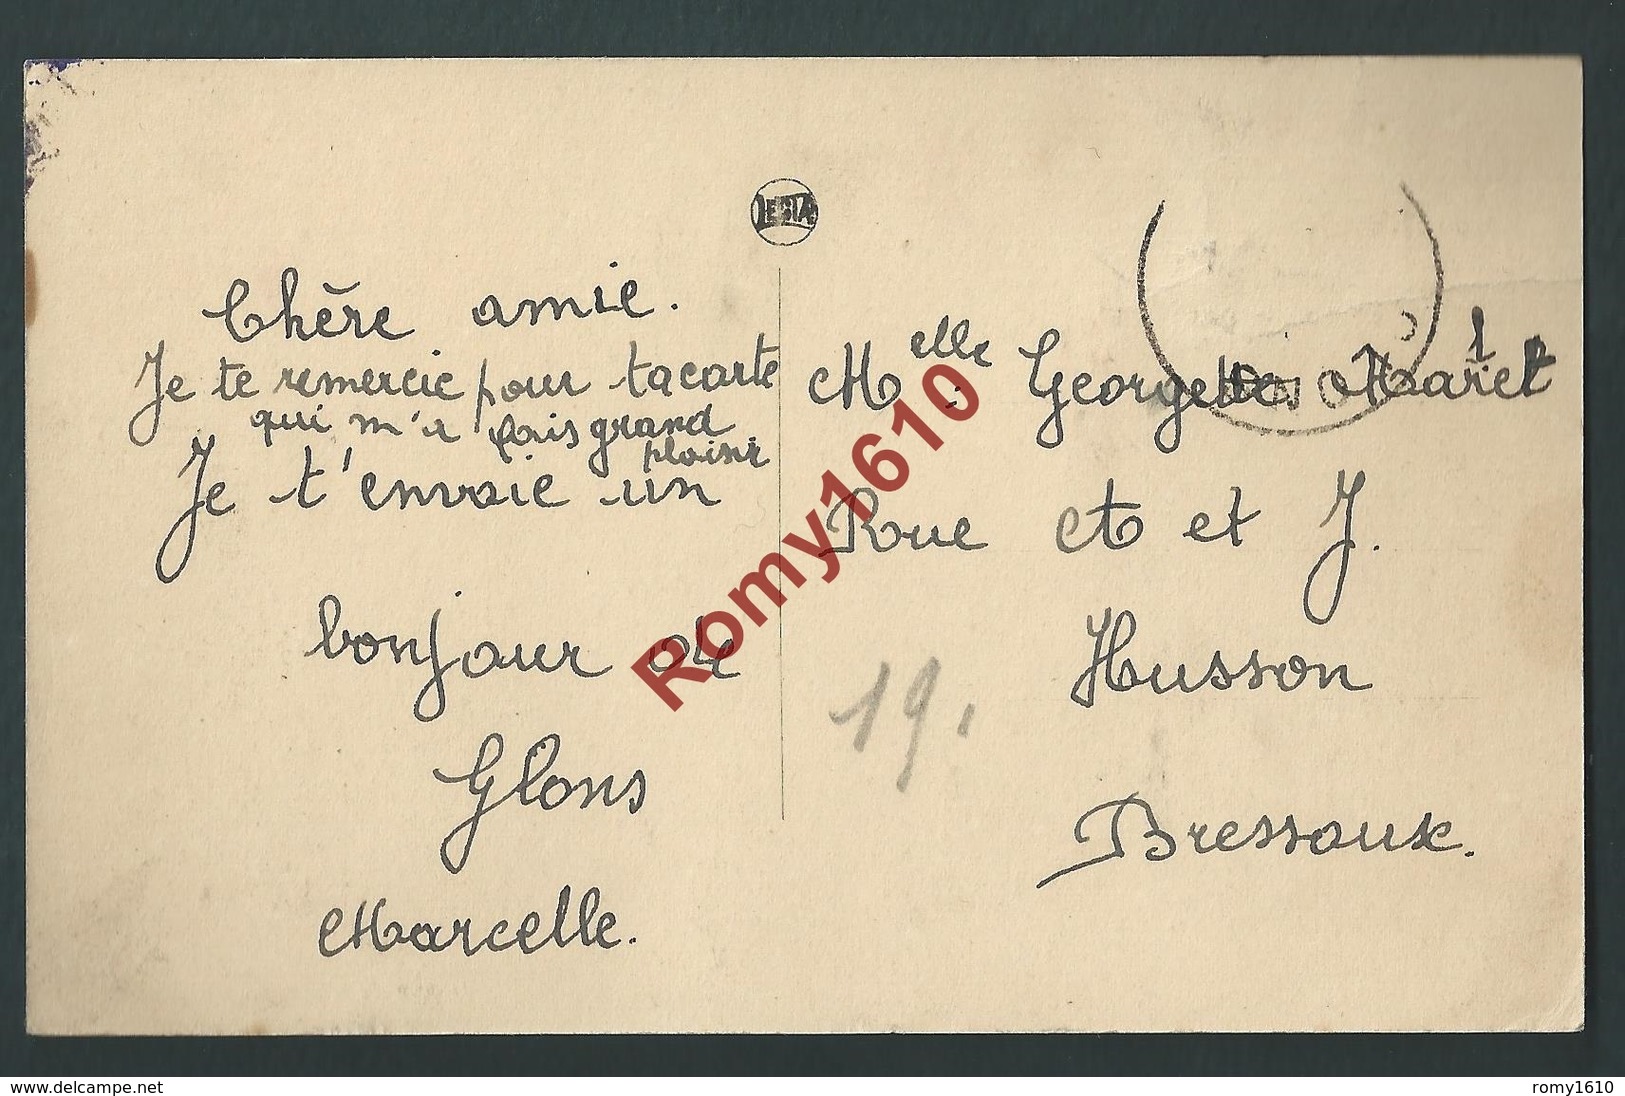 LEGIA
Chère amie.
Je te remercie pour ta carte
qui m'a fais grand
plaisir
Je t'envoie un
bonjour de
Glons
Marcelle.
Melle: Georgette Maret
Rue A et J.
Husson
Bressoux.
19.
Romy1610
www.delcampe.net
romy1610